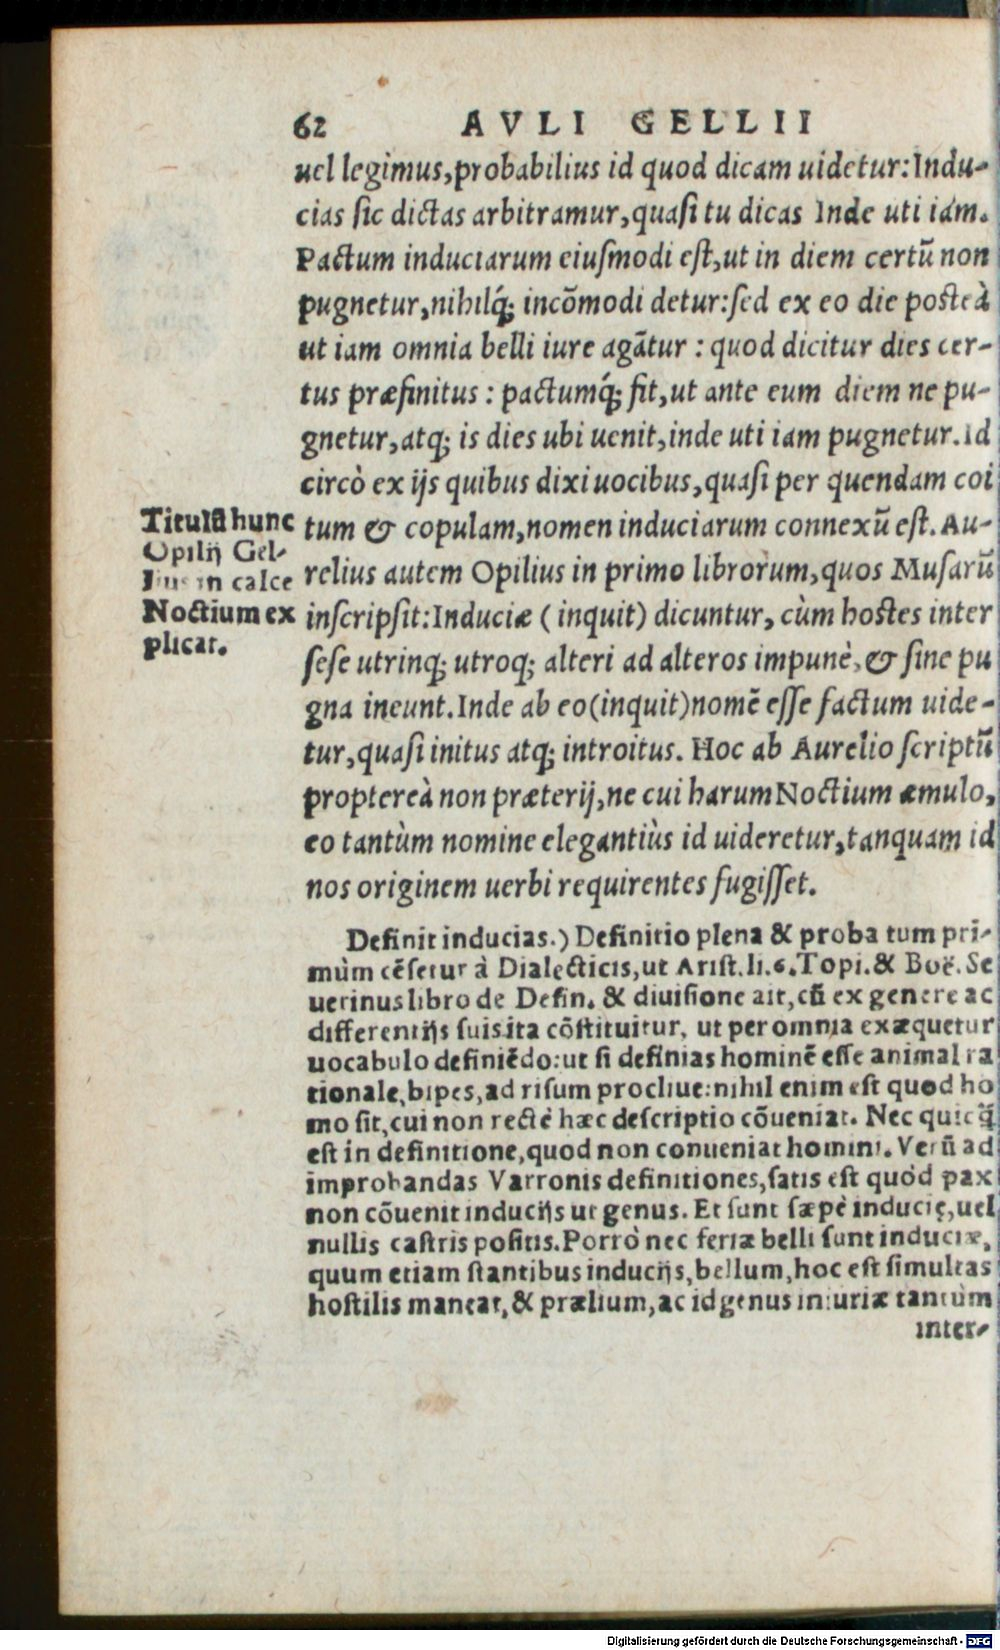 62 AVLI GELLII
uel legimus,probabilius id quod dicam uidetur:Indu-
cias sic dictas arbitramur,quasi tu dicas Inde uti iám.
Pactum induciarum eiusmodi est,ut in diem certũ non
pugnetur,nihilq́; incõmodi detur:sed ex eo die posteà
ut iam omnia belli iure agãtur : quod dicitur dies cer-
tus præfinitus : pactumq́; fit,ut ante eum diem ne pu-
gnetur,atq; is dies ubi uenit,inde uti iam pugnetur.Id
circò ex ijs quibus dixi uocibus,quasi per quendam coi
tum & copulam,nomen induciarum connexũ est. Au-
relius autem Opilius in primo librorum,quos Musarũ
inscripsit:Induciæ (inquit) dicuntur, cùm hostes inter
sese utrinq; utroq; alteri ad alteros impunè, & sine pu
gna ineunt.Inde ab eo(inquit)nomẽ esse factum uide-
tur,quasi initus atq; introitus. Hoc ab Aurelio scriptũ
proptereà non præterij,ne cui harum Noctium æmulo,
eo tantùm nomine elegantiùs id uideretur,tanquam id
nos originem uerbi requirentes fugisset.
Titulũ hunc
Opilij Gel-
lius in calce
Noctium ex
plicat.
Definit inducias.) Definitio plena & proba tum pri-
mùm cẽsetur à Dialecticis,ut Arist.li.6.Topi.& Boë.Se
uerinus libro de Defin. & diuisione ait,cũ ex genere ac
differentijs suis ita cõstituitur, ut per omnia exæquetur
uocabulo definiẽdo:ut si definias hominẽ esse animal ra
tionale,bipes,ad risum procliue:nihil enim est quod ho
mo sit,cui non rectè hæc descriptio cõueniat. Nec quicq̃
est in definitione,quod non conueniat homini. Verũ ad
improbandas Varronis definitiones,satis est quòd pax
non cõuenit inducijs ut genus. Et sunt sæpè inducię,uel
nullis castris positis.Porrò nec feriæ belli sunt induciæ,
quum etiam stantibus inducijs,bellum,hoc est simultas
hostilis maneat,& prælium,ac id genus iniuriæ tantùm
inter-
Digitalisierung gefördert durch die Deutsche Forschungsgemeinschaft - DFG